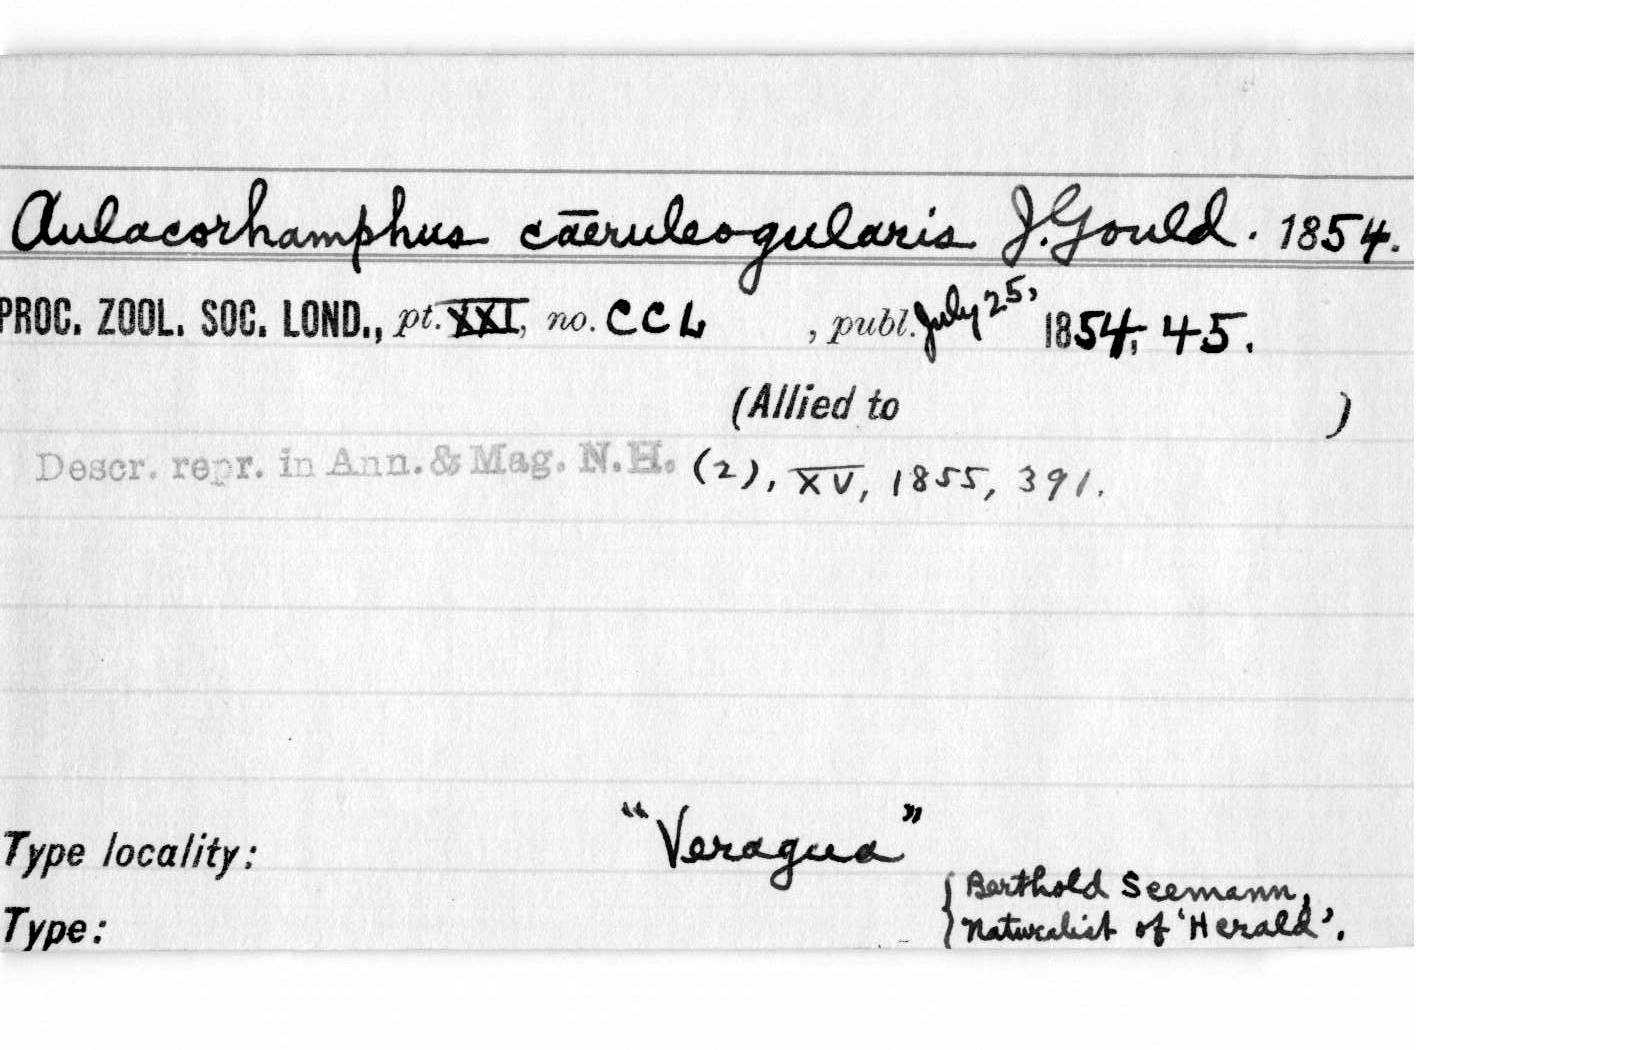 Aulacorhamphus cāeruleogularis J. Gould. 1854.
PROC. ZOOL. SOC. LOND., pt. XXI, no. CCL , publ. July 25, 1854, 45.
(Allied to )
Descr. repr. in Ann. & Mag. N.H. (2), XV, 1855, 391.
Type locality: "Veragua"
Type: { Berthold Seemann,
naturalist of 'Herald'.